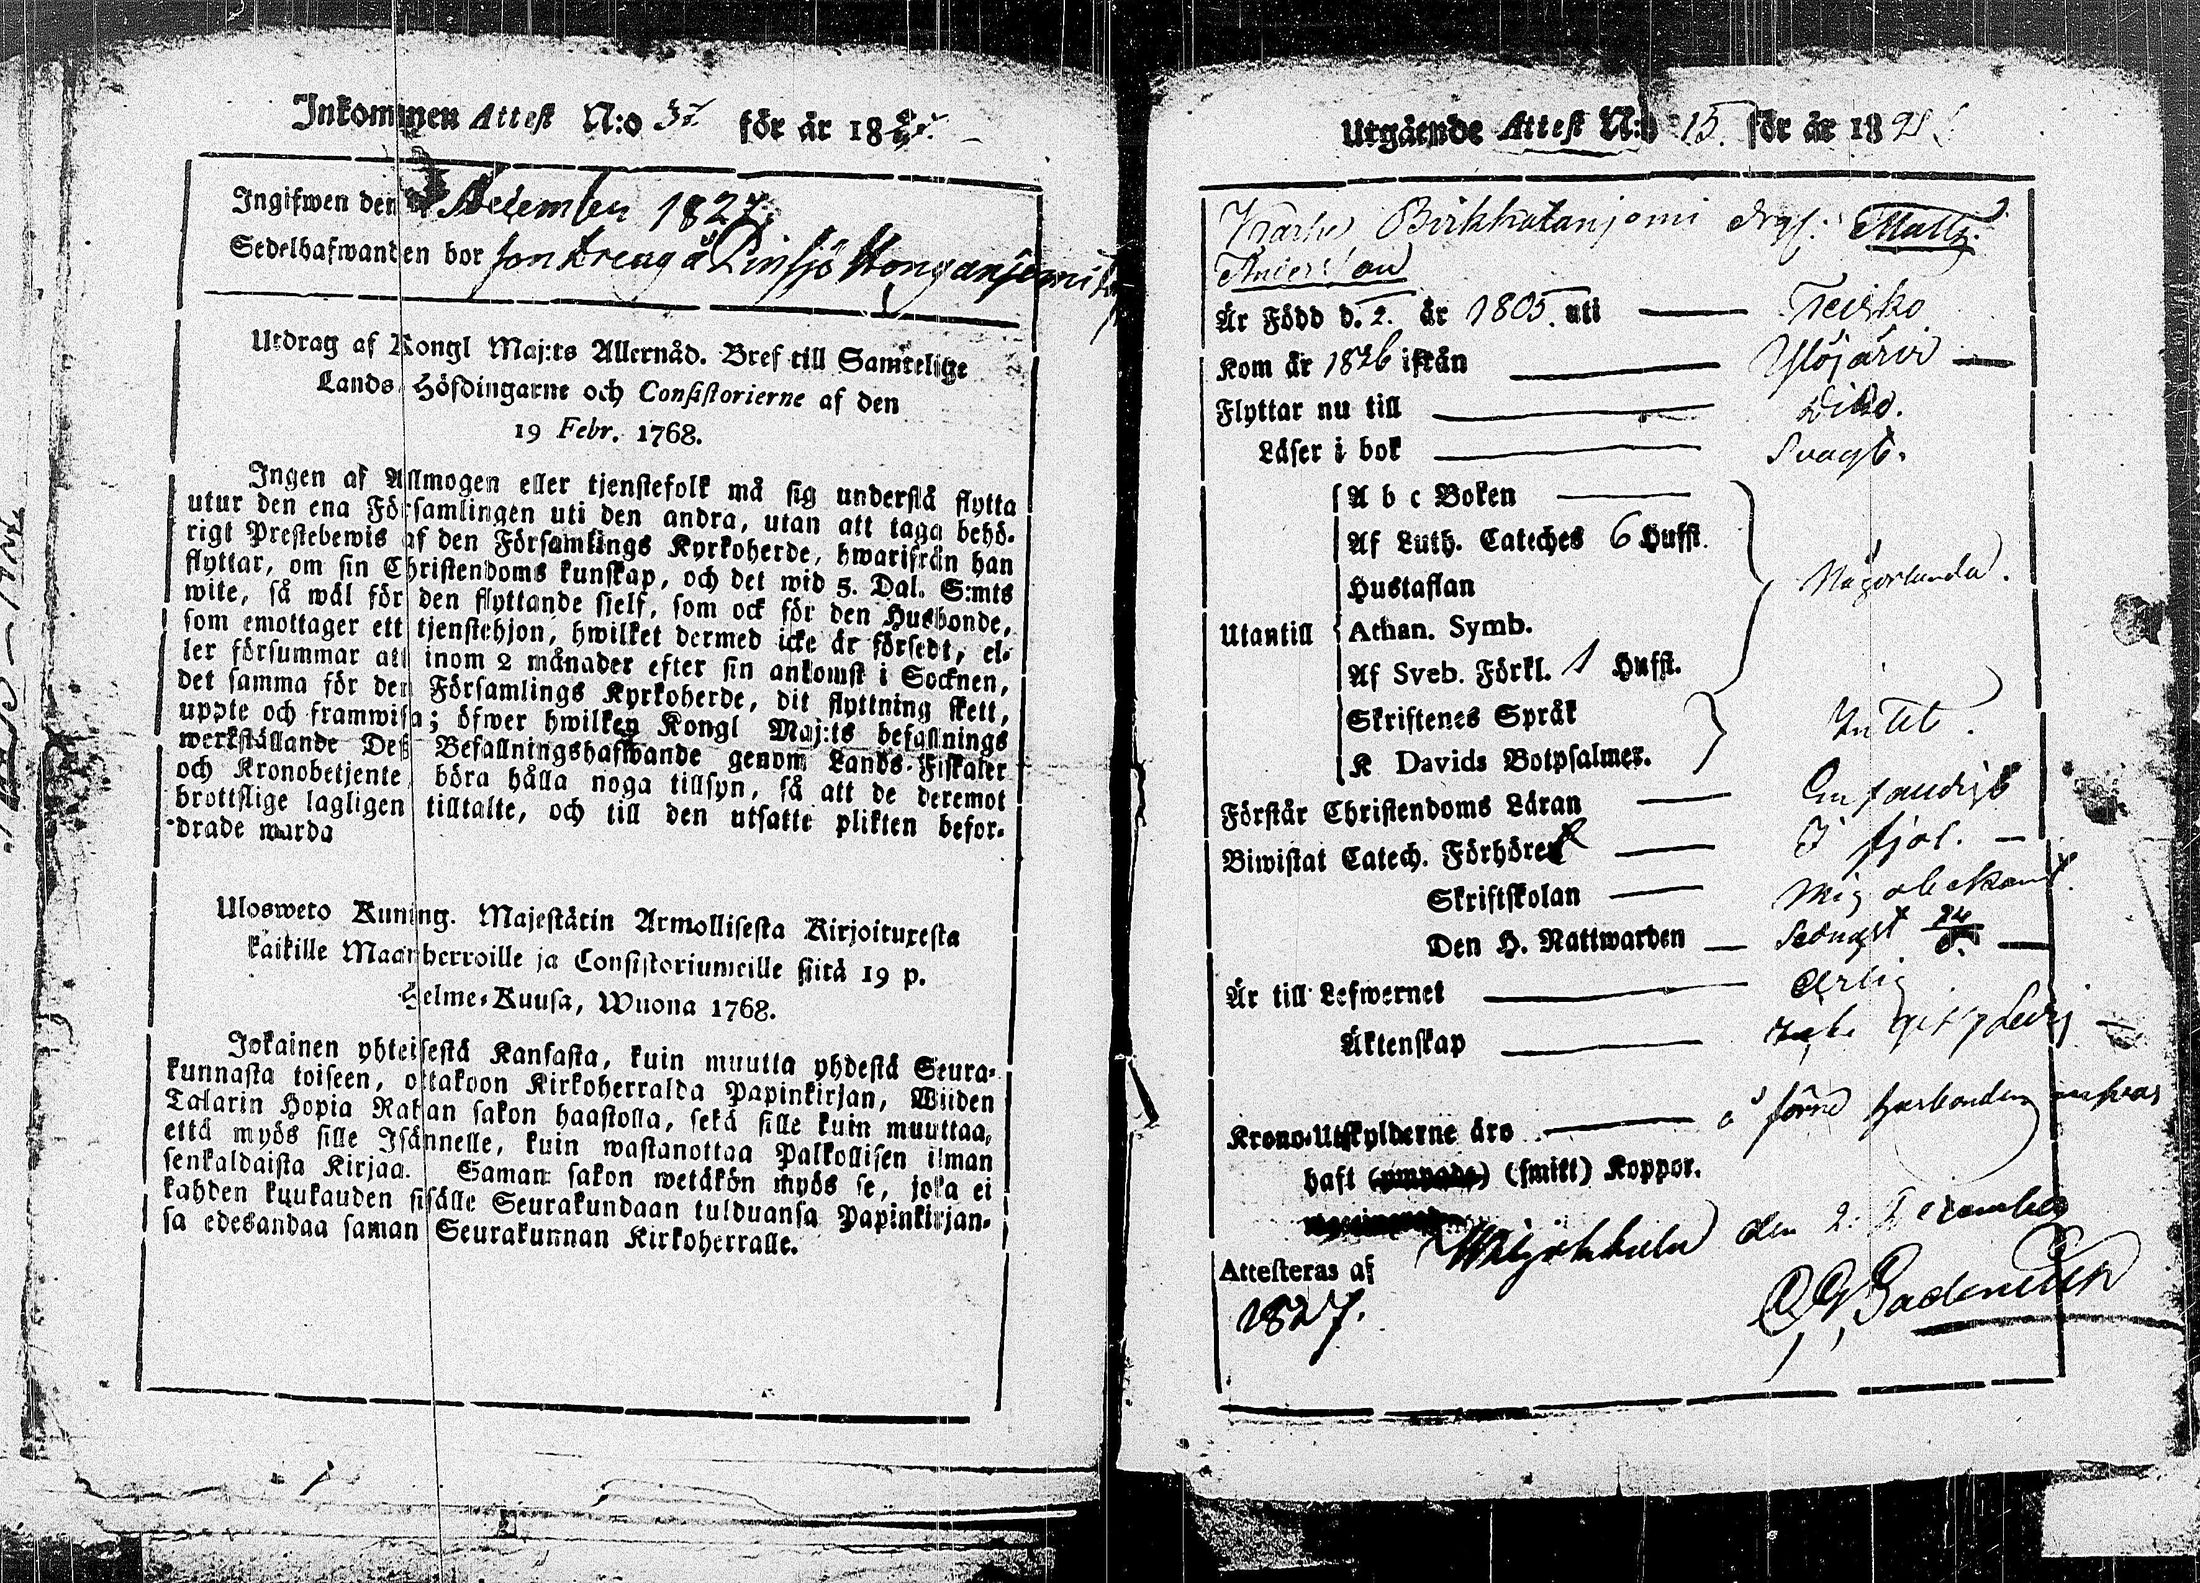 Inkommen Attest N:o 37 för år 18
Ingifwen den December 1827.
Sedelhafwanden bor som dreng å Pinsiö Honganjemi
Utdrag af Kongl Maj:ts Allernåd. Bref till Samtelige
Lands-Höfdingarne och Consistorierne af den
19 Febr. 1768.
Ingen af Allmogen eller tjenstefolk må sig understå flytta
utur den ena Församlingen uti den andra, utan att taga behö-
rigt Prestebewis af den Församlings Kyrkoherde, hwarifrån han
flyttar, om sin Christendoms kunskap, och det wid 5. Dal. S:mts
wite, så wäl för den flyttande sjelf, som ock för den Husbonde,
som emottager ett tjenstehjon, hwilket dermed icke är försedt, el-
ler försummar att inom 2 månader efter sin ankomst i Socknen,
det samma för den Församlings Kyrkoherde, dit flyttning skett,
uppte och framwisa; öfwer hwilken Kongl Maj:ts befallnings
werkställande Deß Befallningshafwande genom Lands-Fiskaler
och Kronobetjente böra hålla noga tillsyn, så att de deremot
brottslige lagligen tilltalte, och till den utsatte plikten befor-
drade warda
Ulosweto Kuning. Majestätin Armollisesta Kirjoituxesta
kaikille Maanherroille ja Consistoriumeille siitä 19 p.
Helme-Kuusa, Wuona 1768.
Jokainen yhteisestä Kansasta, kuin muutta yhdestä Seura-
kunnasta toiseen, ottakoon Kirkoherralda Papinkirjan, Wiiden
Talarin Hopia Rahan sakon haastolla, sekä sille kuin muuttaa,
että myös sille Isännelle, kuin wastanottaa Palkollisen ilman
senkaldaista Kirjaa. Saman sakon wetäkön myös se, joka ei
kahden kuukauden sisälle Seurakundaan tulduansa Papinkirjan-
sa edesandaa saman Seurakunnan Kirkoherralle.
Utgående Attest N:o 15 för år 18
Birkkalanjomi drgs: Matts
Andersson
År Född d. 2. år 1805. uti Teisko
Kom år 1826 ifrån Ylöjärvi
Flyttar nu till
Läser i bok Svagt.
A b c Boken
Af Luth. Cateches 6 Hufst.
Hustaflan
Utantill Athan. Symb. Någorlunda.
Af Sveb. Förkl. 1 Hufst.
Skriftenes Språk Intet.
K Davids Botpsalmer.
Förstår Christendoms Läran Enfaldigt
Biwistat Catech. Förhören I fjol.
Skriftskolan mig obekant.
Den H. Nattwarden Sednast
Är till Lefwernet Ärlig
Äktenskap Icke
Krono-Utskylderne äro å förre husbonden
haft (ympade) (smitt) Koppor.
Attesteras af den 2. December
1827.